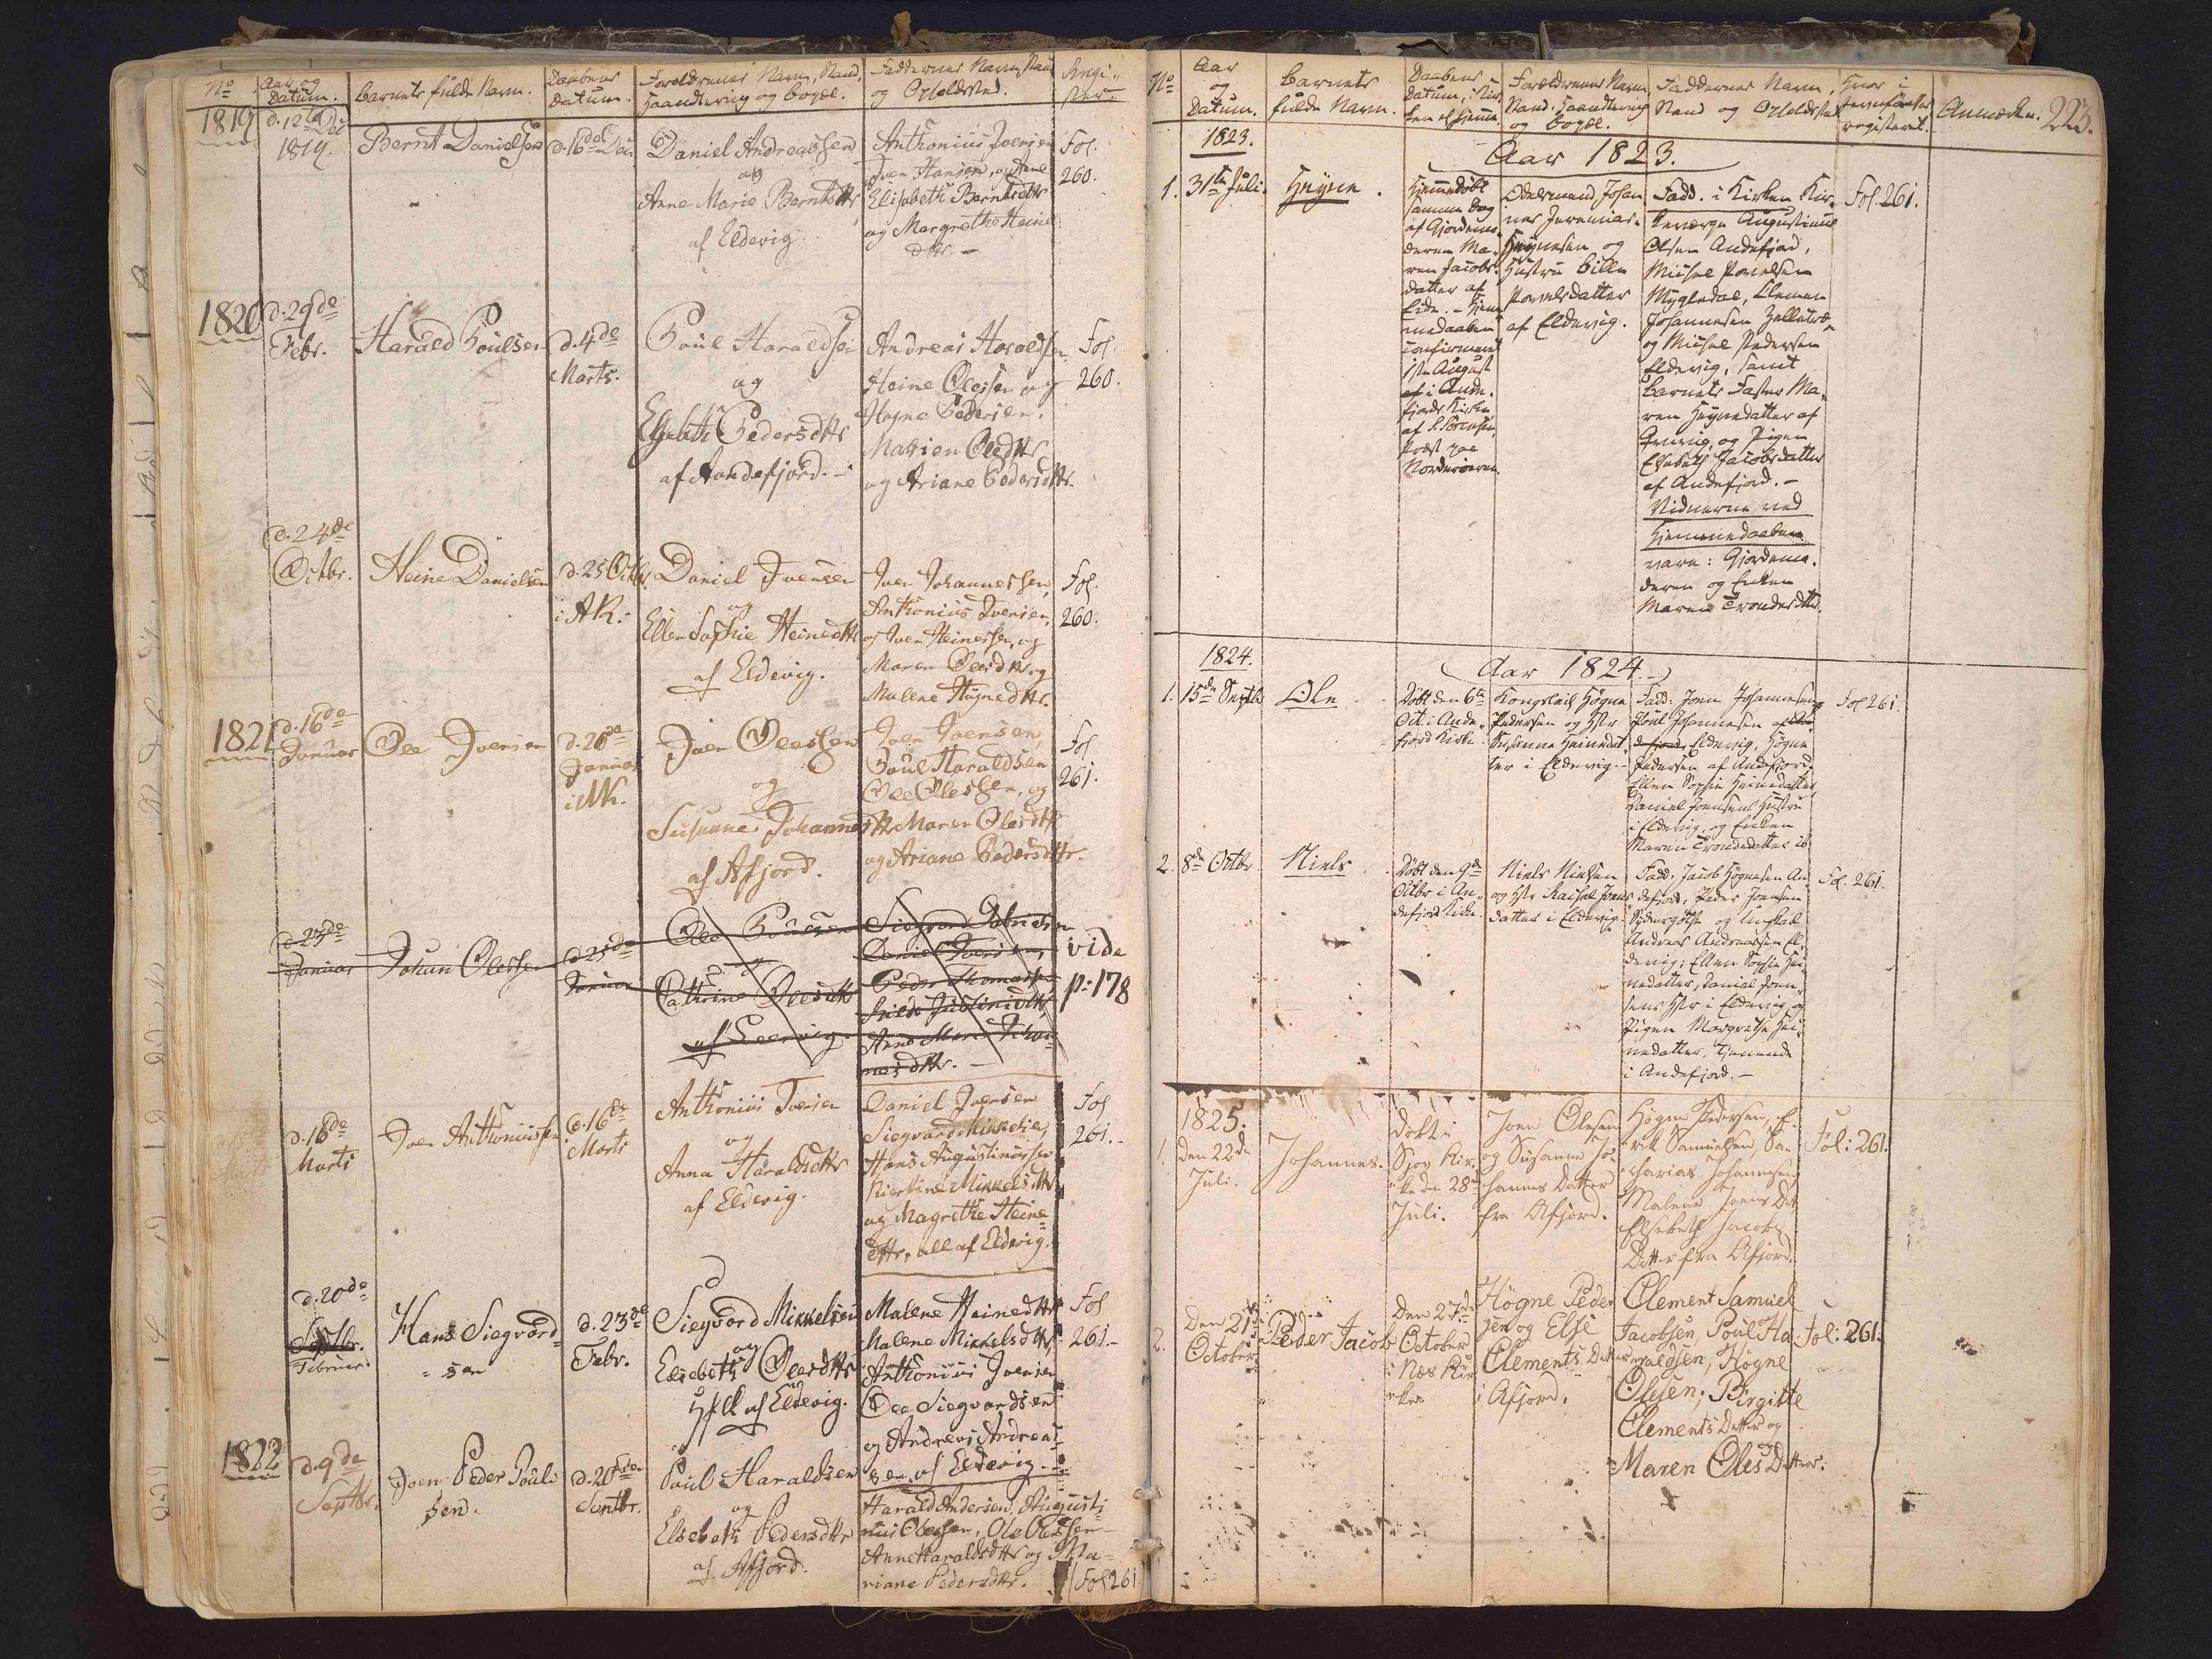 No
Aar og
Datum.
Barnets fulde Navn.
Daabens
Datum.
Forældrenes Navn, Stand,
Haandtering og Bopæl.
Faddernes Navn, Stand
og Opholdsted.
Regi-
ster.
1819
d. 12te Dec
1819.
Bernt Danielsen
d. 16de Dec
Daniel Andreassen
og
Anne Marie Berntsdttr
af Eldevig
Anthonius Joensen
Joen Hansen, og Anne
Elisabeth Berntsdttr
og Margrethe Heine
dttr. -
Fol.
260.
1820
d. 29de
Febr.
Harald Poulsen
d. 4de
Marts.
Poul Haraldsen
og
Elsebeth Pedersdttr
af Andefjord. -
Andreas Haraldsen
Heine Olessen og
Høgne Pedersen.
Matrien Olesdttr
og Ariane Pedersdttr.
Fol.
260.
d. 24de
Octbr.
Heine Danielsen
d. 25 Octbr
i AK.
Daniel Joensen
og
Ellen Sophie Heinedttr
af Eldevig.
Joen Johannessen,
Anthonius Joensen,
og Joen Heinessen, og
Maren Olesdttr. og
Malene Høgnedttr.
Fol.
260.
1821
d. 16de
Januar
Ole Joensen
d. 20de
Januar
i NK.
Joen Olessen
og
Susanne Johannesdttr
af Afjord.
Joen Joensen,
Poul Haraldsen
Ole Olessen, og
Maren Olesdttr
og Ariane Pedersdttr.
Fol
261.
d. 23de
Januar
Johan Olessen
d. 25de
Januar
Ole Poulsen
og
Cathrine Olesdttr
af Eldevig
Daniel Joensen,
Peder Thomassen
Anne Marie Johan-
nesdttr. -
vide
p: 178
d. 16de
Marts
Joen Anthoniussen
d. 16de
Marts
Anthonius Joensen
og
Anna Haraldsdttr
af Eldevig.
Daniel Joensen
Siegvard Mikkelsen,
Hans Augustinussen
Kirstine Mikkelsdttr
og Magrethe Heine-
dttr, all af Eldevig.
Fol
261.-
d. 20de
Septbr.
Februar.
Hans Siegvard-
-sen
d. 23de
Febr.
Siegvard Mikkelsen
og
Elsebeth Olesdttr
af Eldevig.
Malene Heinedttr
Malene Mikkelsdttr
Anthonius Joensen
Ole Siegvardsen
og Andreas Andreas-
sen, af Eldevig -
Fol
261.-
1822
d. 9de
Septbr.
Joen Peder Pouls
sen.
d. 20de
Septbr.
Poul Haraldsen
og
Elsebeth Pedersdttr
af Afjord.
Harald Andersen, Augusti-
nus Olessen, Ole Olessen
Anne Haraldsdttr og Ma-
riane Pedersdttr.
Fol 261
No
Aar
og
Datum.
Barnets
fulde Navn.
Daabens
Datum, i Kir-
ken el. hjemme.
Forældrenes Navn,
Stand, Haandtering
og Bopæl.
Faddernes Navn,
Stand og Opholdsted
Hvor i
Jevnførelses
registeret.
Anmærkn.
223.
1823.
Aar 1823.
1.
31te Juli.
Høgne.
Hjemmedøbt
samme Dag
af Gjordemo-
deren Ma-
ren Jacobs-
datter af
Eide. - Hjem-
medaaben
confirmeret
1ste August
i Ande-
fjords Kirke
af P. Sørensen,
Præst paa
Norderøerne.
Odelsmand Johan-
nes Jeremias-
Høgnesen og
Hustru Bille
Povelsdatter
af Eldevig.
Fadd. i Kirken Kir-
keværge Augustinus
Olsen Andefjord,
Michel Povelsen
Mygledal, Clemen
Johannesen Gelletræ,
og Michel Pedersen
Eldevig, samt
Barnets Faster Ma-
ren Høgnedatter af
og Pigen
Elsebeth Jacobsdatter
af Andefjord. -
Vidnerne ved
Hjemmedaaben
vare: Gjordemo-
deren og Enken
Maren Trondesdttr.
Fol. 261.
1824.
Aar 1824.
1.
15de Septbr
Ole
Døbt den 6te
Oct. i Ande-
fjord Kirke
Kongsleil. Høgne
Pedersen og Hstr
Susanna Heinedat-
ter i Eldevig.
Fadd: Joen Johannesen og
Poul Johannesen af
Eldevig, Høgne
Pedersen af Andefjord,
Ellen Sophie Heinedatter,
Daniel Joensens Hustru
i Eldevig, og Enken
Maren Trondesdatter ib.
Fol 261.
2.
8de Octbr
Niels
Døbt den 9de
Octbr i An-
defjord Kirke.
Niels Nielsen
og Hstr Rachel Joens-
datter i Eldevig.
Fadd: Jacob Høgnesen An-
defjord, Peder Joensen
Syderøgøthe og Ungkarl
Andreas Andreassen El-
devig: Ellen Sophie Hei-
nedatter, Daniel Joen-
sens Hstr i Eldevig, og
Pigen Margrethe Hei-
nedatter, tjenende
i Andefjord. -
Fol. 261.
1825.
1.
den 22de
Juli.
Johannes.
døbt i
Sjov Kir-
ke den 28de
Juli.
Joen Olesen
og Susanne Jo-
hannes Datter
fra Afjord.
Høgne Pedersen, E-
rik Samuelsen, Za-
charias Johannesen,
Malene Joens Dat
Elsebeth Jacobs
Datter fra Afjord.
Fol: 261.
2.
Den 21de
October
Peder Jacob
Den 27de
October
i Næs Kir-
ke
Høgne Peder-
sen og Else
Clements Datter
i Afjord.
Clement Samuel
Jacobsen, Poul Ha-
raldsen, Høgne
Olesen, Birgitte
Clements Datter og
Maren Oles Datter.
Fol: 261.